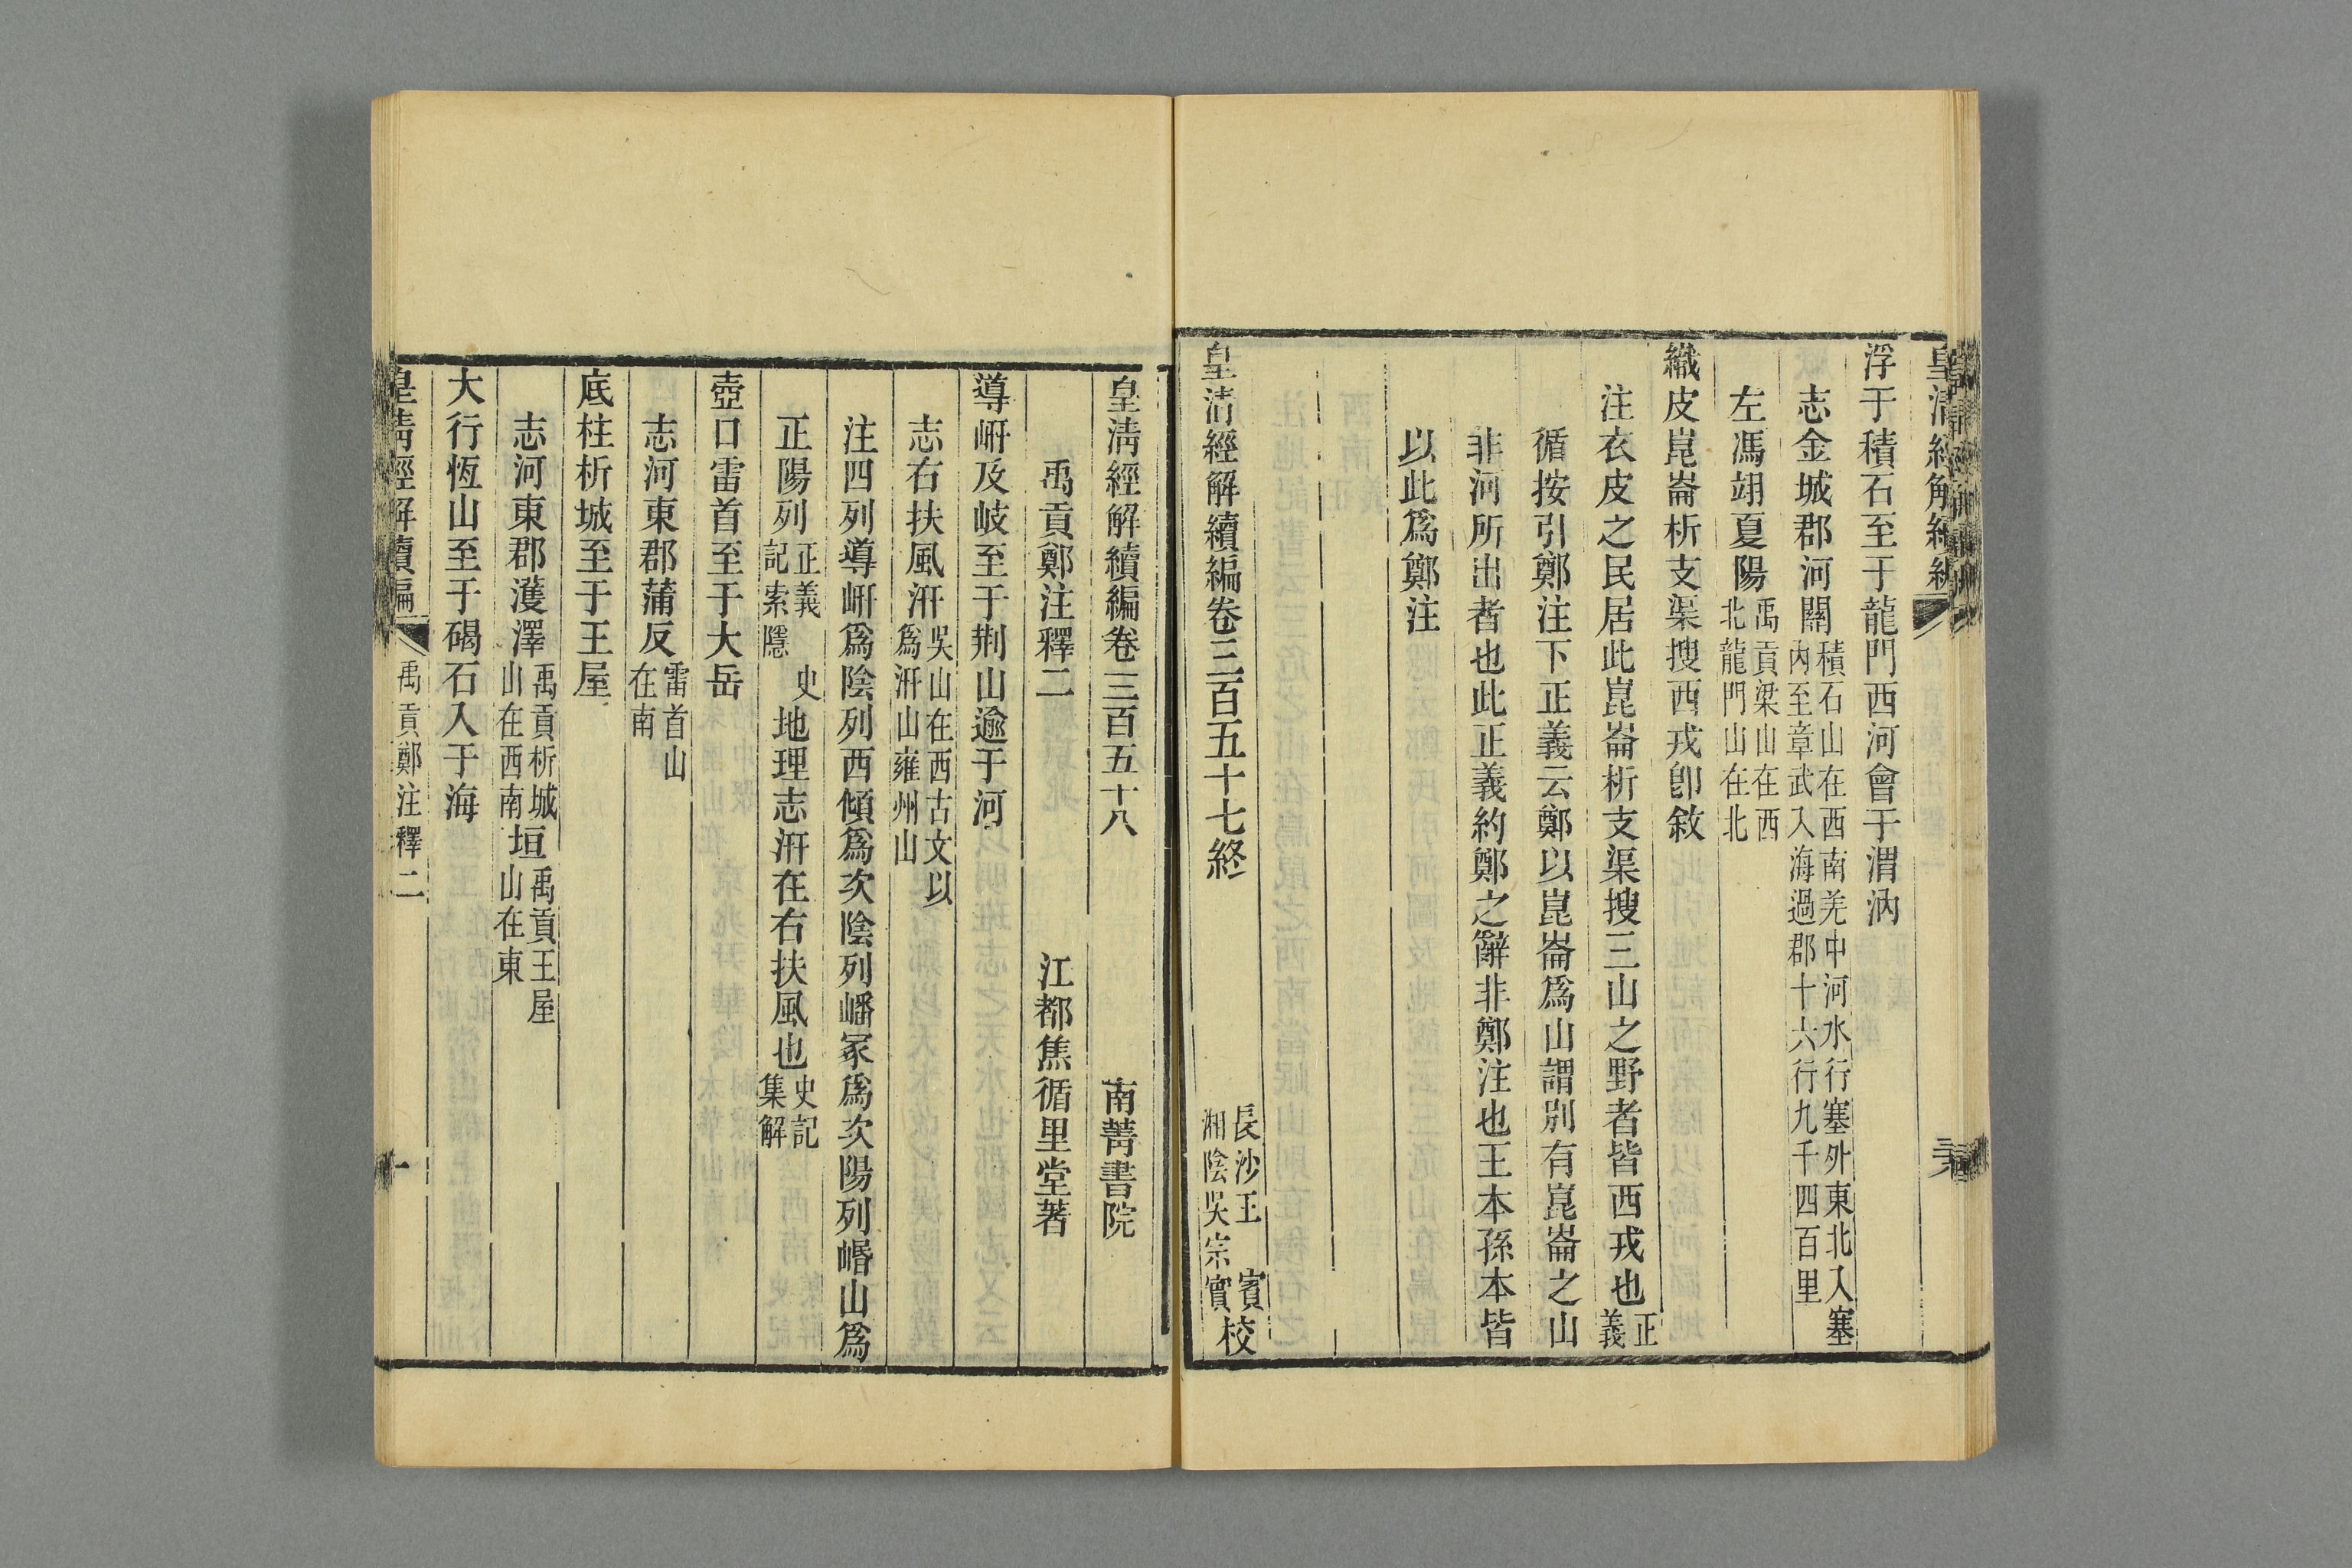 皇清經解續編
浮于積石至于龍門西河會于渭汭
志金城郡河關積石山在西南羌中河水行塞外東北入塞內至章武入海過郡十六行九千四百里
左馮翊夏陽禹貢梁山在西北龍門山在北
織皮崑崙析支渠搜西戎卽敘
注衣皮之民居此崑崙析支渠搜三山之野者皆西戎也正義
循按引鄭注下正義云鄭以崑崙爲山謂別有崑崙之山
非河所出者也此正義約鄭之辭非鄭注也王本孫本皆
以此爲鄭注
皇清經解續編卷三百五十七終
長沙王 賓
湘陰吳宗實
校
皇清經解續編卷三百五十八
南菁書院
禹貢鄭注釋二
江都焦循里堂著
導岍及岐至于荆山逾于河
志右扶風汧吳山在西古文以爲汧山雍州山
注四列導岍爲陰列西傾爲次陰列嶓冢爲次陽列㟭山爲
正陽列正義 史記索隱地理志汧在右扶風也史記集解
壺口雷首至于大岳
志河東郡蒲反雷首山在南
厎柱析城至于王屋
志河東郡濩澤禹貢析城山在西南垣禹貢王屋山在東
大行恆山至于碣石入于海
皇清經解續編
禹貢鄭注釋二
一